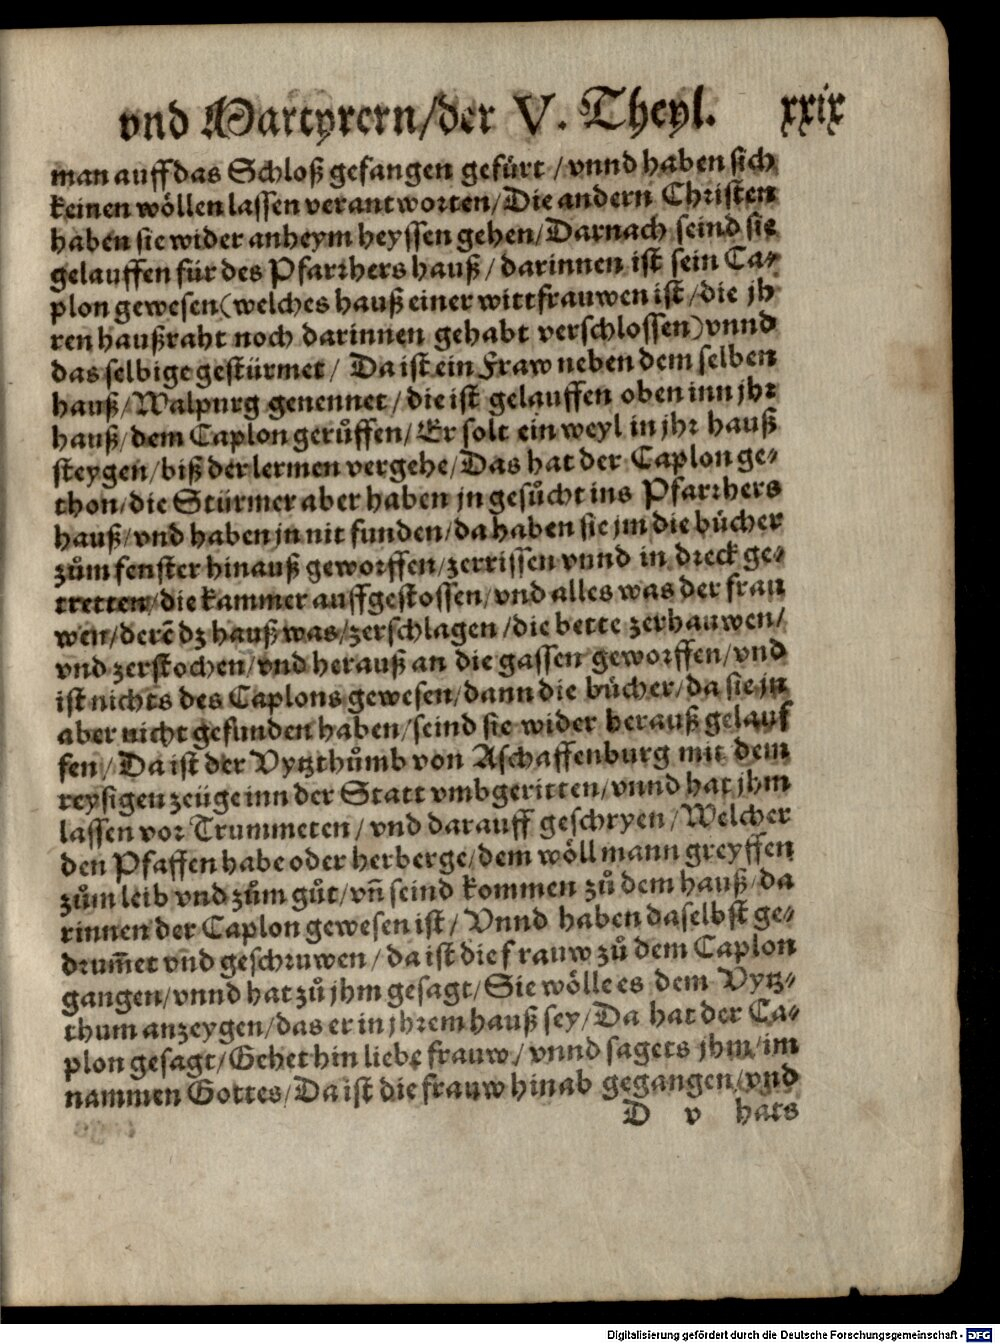 vnd Martyrern/der V. Theyl. xxix
man auff das Schloß gefangen gefürt / vnnd haben sich
keinen wöllen lassen verantworten/Die andern Christen
haben sie wider anheym heyssen gehen/Darnach seind sie
gelauffen für des Pfarrhers hauß / darinnen ist sein Ca-
plon gewesen(welches hauß einer wittfrauwen ist/die jh
ren haußraht noch darinnen gehabt verschlossen)vnnd
das selbige gestürmet / Da ist ein Fraw neben dem selben
hauß/Walpurg genennet/die ist gelauffen oben inn jhr
hauß/dem Caplon gerůffen/Er solt ein weyl in jhr hauß
steygen/biß der lermen vergehe/Das hat der Caplon ge-
thon/die Stürmer aber haben jn gesůcht ins Pfarrhers
hauß/vnd haben jn nit funden/da haben sie jm die bůcher
zům fenster hinauß geworffen/zerrissen vnnd in dreck ge-
tretten/die kammer auffgestossen/vnd alles was der frau
wen/derē dz hauß was/zerschlagen/die bette zerhauwen/
vnd zerstochen/vnd herauß an die gassen geworffen/vnd
ist nichts des Caplons gewesen/dann die bůcher/da sie jn
aber nicht gefunden haben/seind sie wider herauß gelauf
fen/Da ist der Vytzthůmb von Aschaffenburg mit dem
reysigen zeüge inn der Statt vmbgeritten/vnnd hat jhm
lassen vor Trummeten/vnd darauff geschryen/Welcher
den Pfaffen habe oder herberge/dem wöll mann greyffen
zům leib vnd zům gůt/vñ seind kommen zů dem hauß/da
rinnen der Caplon gewesen ist/Vnnd haben daselbst ge-
drum̄et vnd geschruwen/da ist die frauw zů dem Caplon
gangen/vnnd hat zů jhm gesagt/Sie wölle es dem Vytz-
thum anzeygen/das er in jhrem hauß sey/Da hat der Ca-
plon gesagt/Gehet hin liebe frauw/vnnd sagets jhm/im
nammen Gottes/Da ist die frauw hinab gegangen/vnd
D v hats
Digitalisierung gefördert durch die Deutsche Forschungsgemeinschaft - DFG